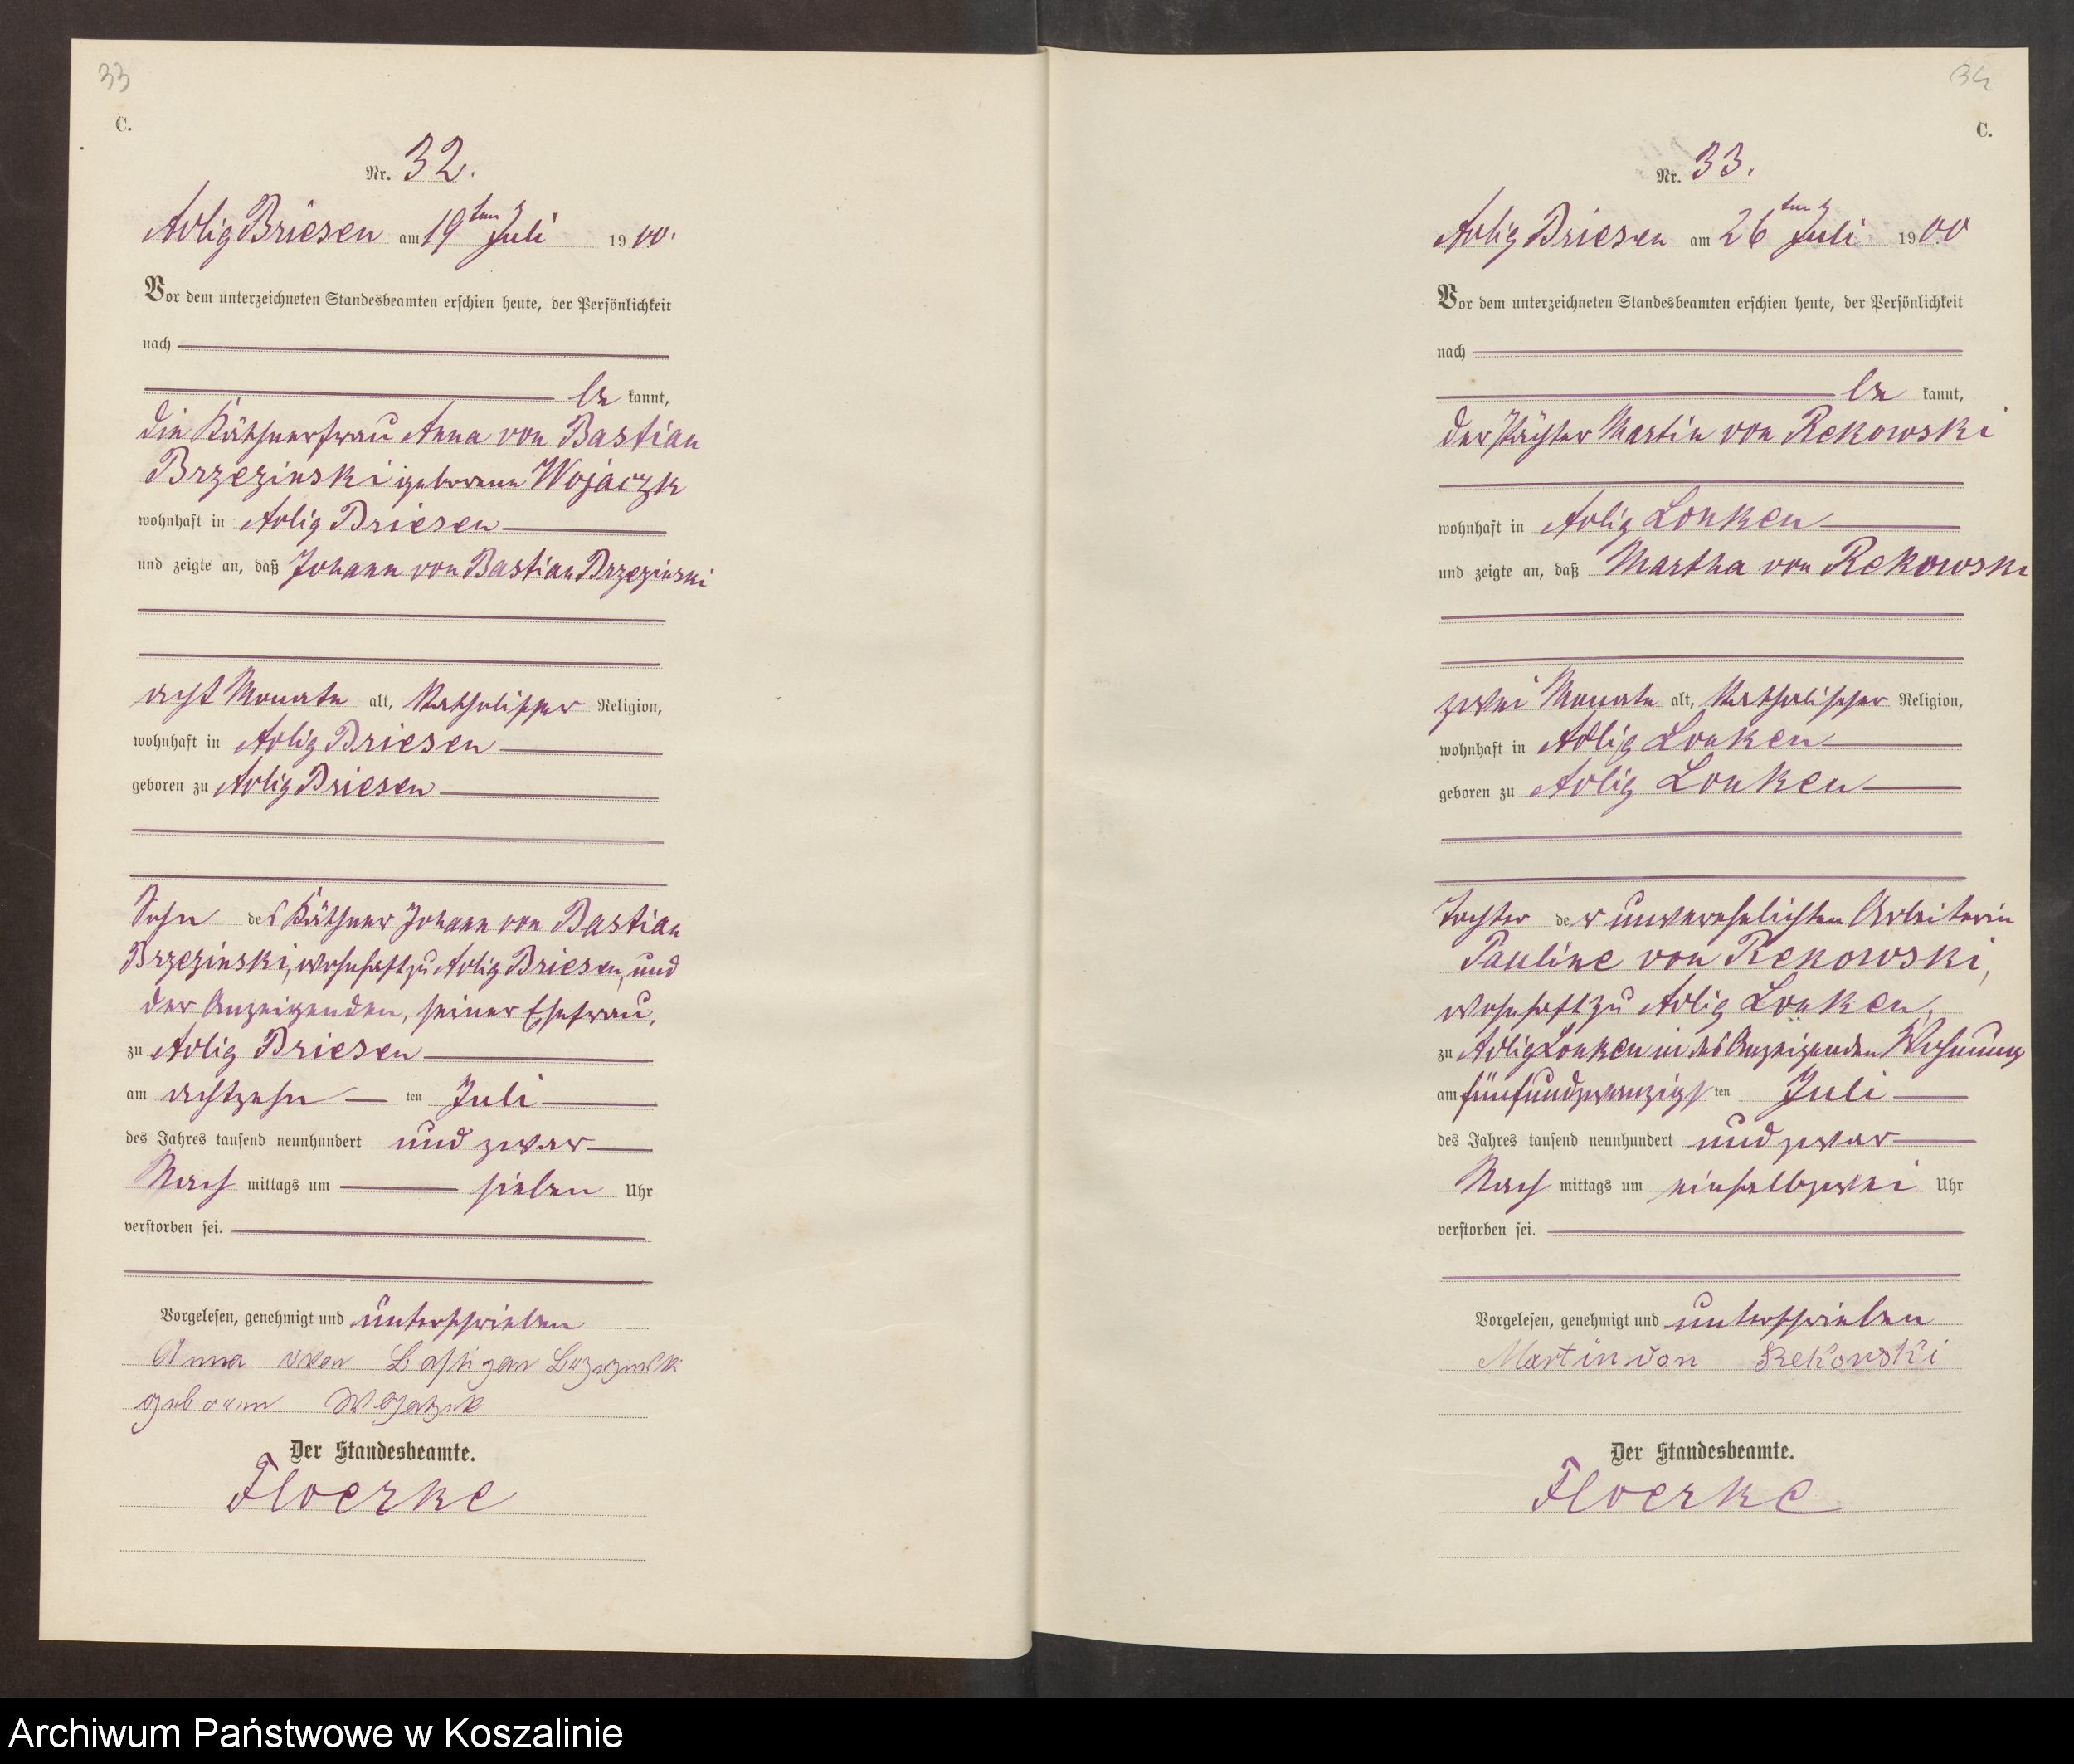 33
C.
Nr. 32.
Adlig Briesen am 19ten Juli 1900.
Vor dem unterzeichneten Standesbeamten erschien heute, der Persönlichkeit
nach
be kannt,
die Käthnerfrau Anna von Bastian
Brzezinski geborene Wojaczk
wohnhaft in Adlig Briesen
und zeigte an, daß Johann von Bastian Brzezinski
acht Monate alt, katholischer Religion,
wohnhaft in Adlig Briesen
geboren zu Adlig Briesen
Sohn des Käthner Johann von Bastian
Brzezinski, wohnhaft zu Adlig Briesen, und
der Anzeigenden, seiner Ehefrau,
zu Adlig Briesen
am achtzehn ten Juli
des Jahres tausend neunhundert und zwar
Nach mittags um sieben Uhr
verstorben sei.
Vorgelesen, genehmigt und unterschrieben
Anna von Bastian Brzezinski
geboren
Der Standesbeamte.
Floerke
34
C.
Nr. 33.
Adlig Briesen am 26ten Juli 1900
Vor dem unterzeichneten Standesbeamten erschien heute, der Persönlichkeit
nach
be kannt,
der Pächter Martin von Rekowski
wohnhaft in Adlig Lonken
und zeigte an, daß Martha von Rekowski
zwei Monate alt, katholischer Religion,
wohnhaft in Adlig Lonken
geboren zu Adlig Lonken
Tochter der unverehelichten Arbeiterin
Pauline von Rekowski,
wohnhaft zu Adlig Lonken,
zu Adlig Lonken in des Anzeigenden Wohnung
am fünfundzwanzigs ten Juli
des Jahres tausend neunhundert und zwar
Nach mittags um einhalbzwei Uhr
verstorben sei.
Vorgelesen, genehmigt und unterschrieben
Martin von Rekowski
Der Standesbeamte.
Floerke
Archiwum Państwowe w Koszalinie